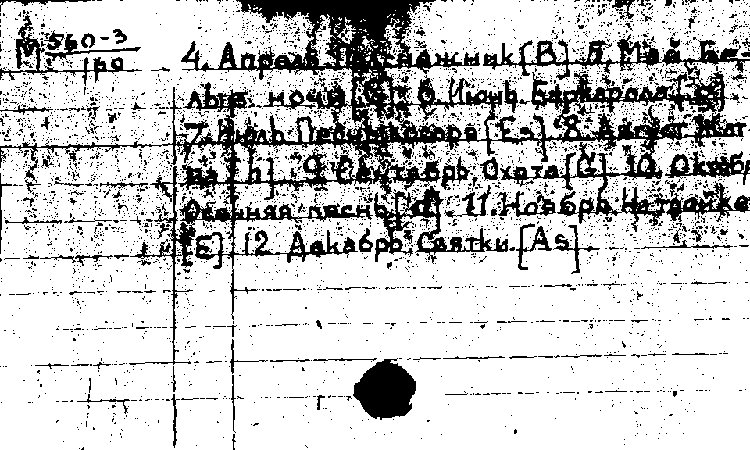 М 560-3
про
4. Апрель. Подснежник [B]. 5. Май. Бе-
лые ночи [G]. 6. Июнь. Баркарола [g]
7. Июль. Песнь косаря [Es]. 8. Август. Жат
ва [h]. 9. Сентябрь. Охота [G]. 10. Октябрь
Осенняя песнь [d]. 11. Ноябрь. На тройке
[E] 12. Декабрь. Святки. [As].